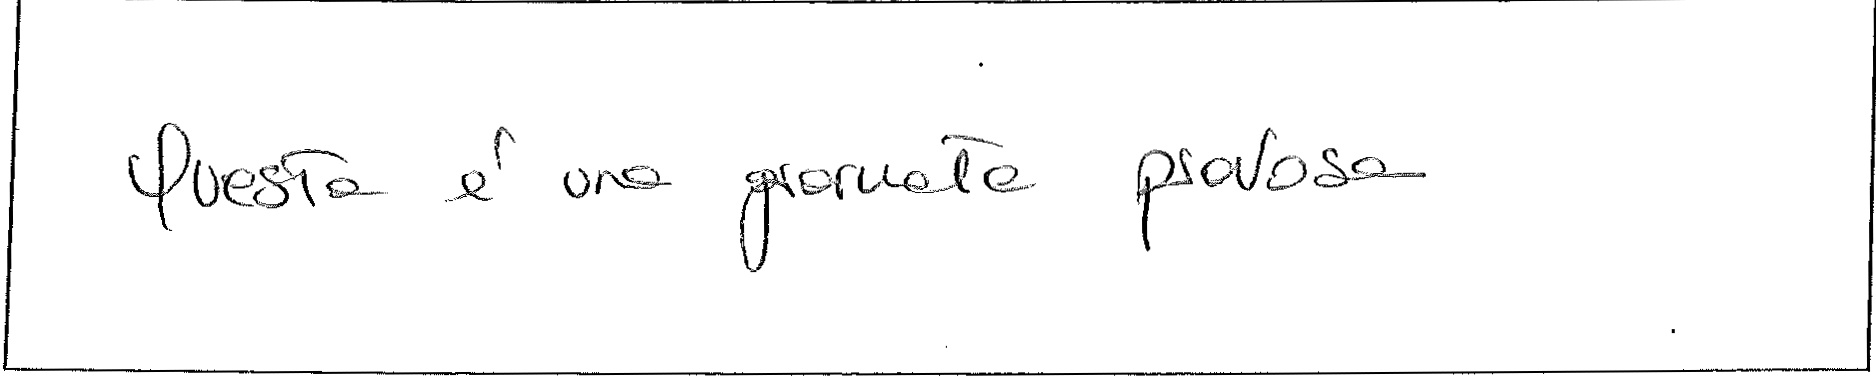 Questa e' una giornata piovosa